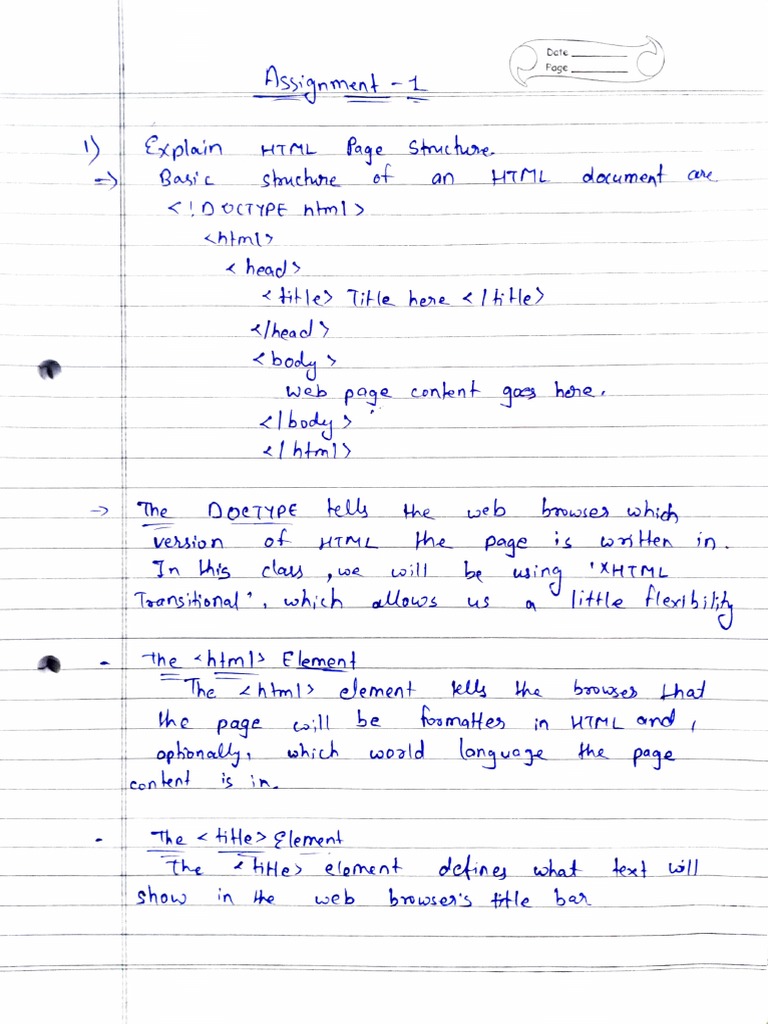 Date
Page
Assignment - 1
1) Explain HTML Page Structure.
=> Basic structure of an HTML document are
<!DOCTYPE html>
<html>
<head>
<title> Title here </title>
</head>
<body>
web page content goes here.
</body>
</html>
-> The DOCTYPE tells the web browser which
version of HTML the page is written in.
In this class, we will be using 'XHTML
Transitional', which allows us a little flexibility
- The <html> Element
The <html> element tells the browser that
the page will be formatted in HTML and,
optionally, which world language the page
content is in.
- The <title> Element
The <title> element defines what text will
show in the web browser's title bar